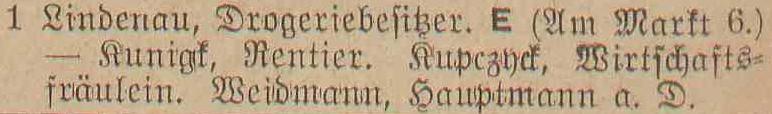 1 Lindenau, Drogeriebesitzer. E (Am Markt 6.)
— Kunigk, Rentier. Kupczyck, Wirtschafts-
fräulein. Weidmann, Hauptmann a. D.